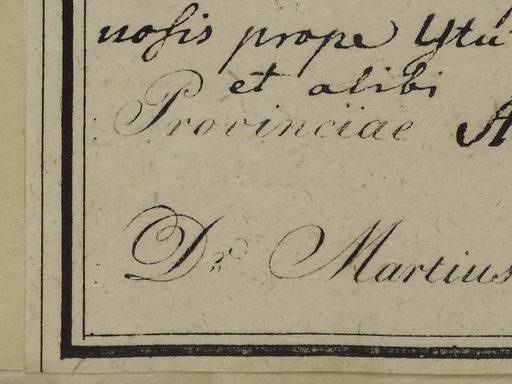 nosis prope Ytu
et alibi
Provinciae
Dr. Martius